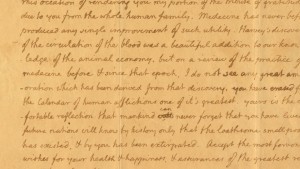 this occasion of rendering you my portion of the tribute of gratitude
due to you from the whole human family. Medecine has never be
produced any single improvement of such utility. Harvey's discov
of the circulation of the blood was a beautiful addition to our know
ledge of the animal economy, but on a review of the practice of
medecine before & since that epoch, I do not see any great am
oration which has been derived from that discovery, you have erased f
the Calendar of human afflictions one of it's greatest. yours is the
fortable reflection that mankind can never forget that you have live
future nations will know by history only that the loathsome small po
has existed, & by you has been extirpated. Accept the most ferven
wishes for your health & happiness, & assurances of the greatest re